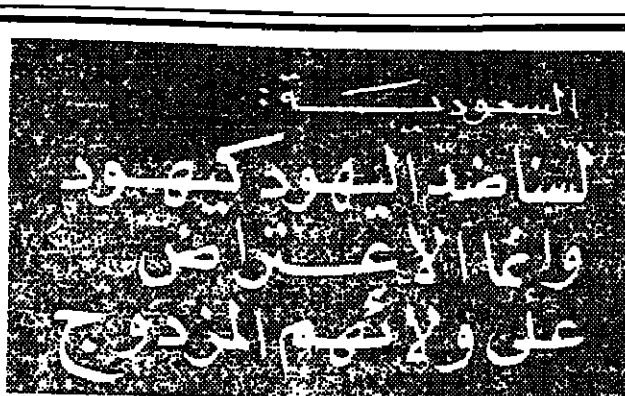 السعودية:
لسنا ضد اليهود كيهود
وإنما الاعتراض
على ولائهم المزدوج